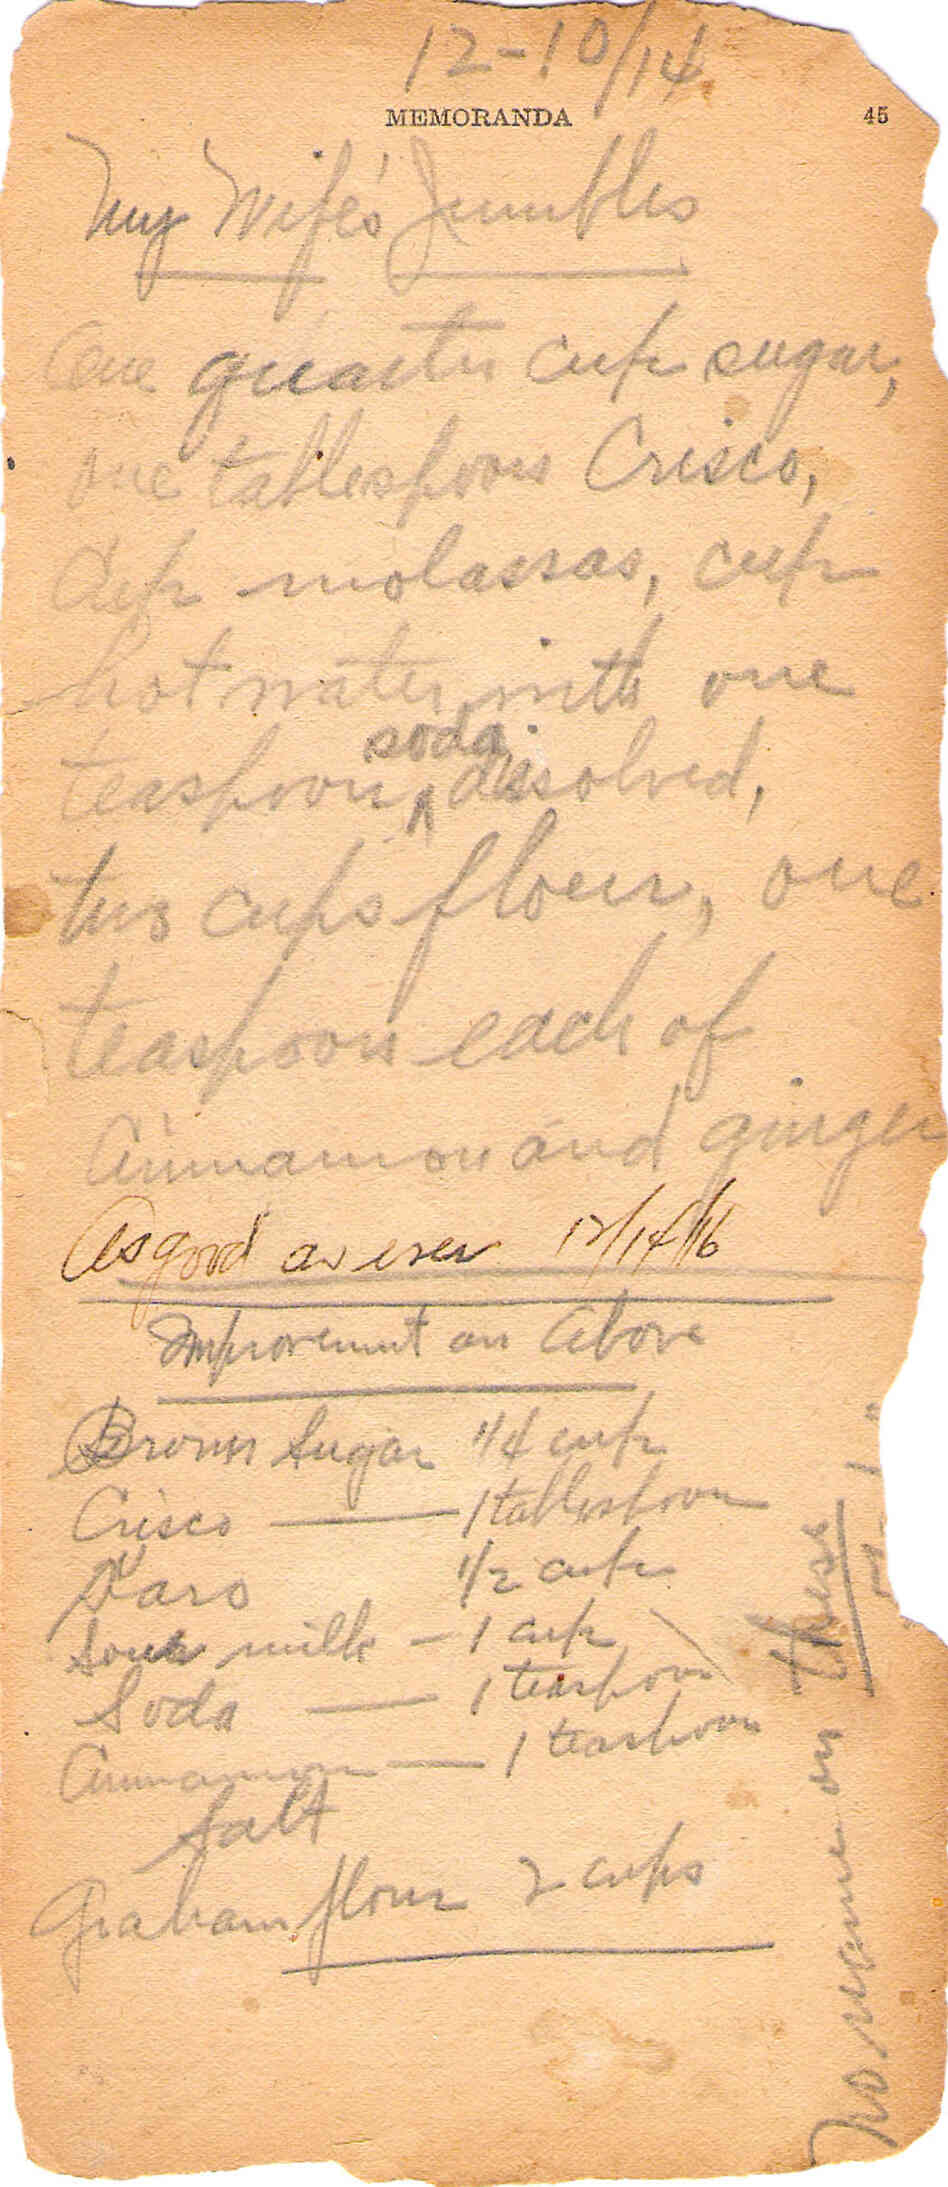 12-10/14
MEMORANDA 45
My Wife's Jumbles
One quarter cup sugar,
one tablespoon Crisco,
Cup molassas, cup
hot water with one
soda
teaspoon ^ dissolved,
two cups flour, one
teaspoon each of
Cinnamon and ginger
As good as ever 12/14/16
Improvement on Above
Brown Sugar 1/4 cup
Crisco — 1 tablespoon
Karo 1/2 cup
Sour milk - 1 cup
Soda — 1 teaspoon
Cinnamon — 1 teaspoon
Salt
Graham flour 2 cups
No name on these